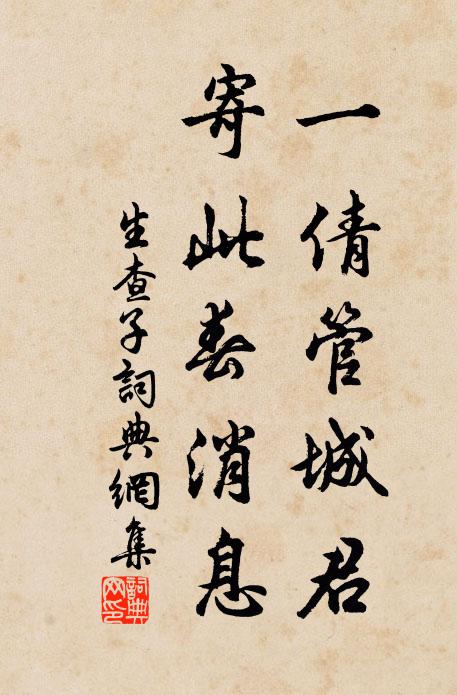 一倩管城君
寄此春消息
生查子詞典網集
詞典
网印